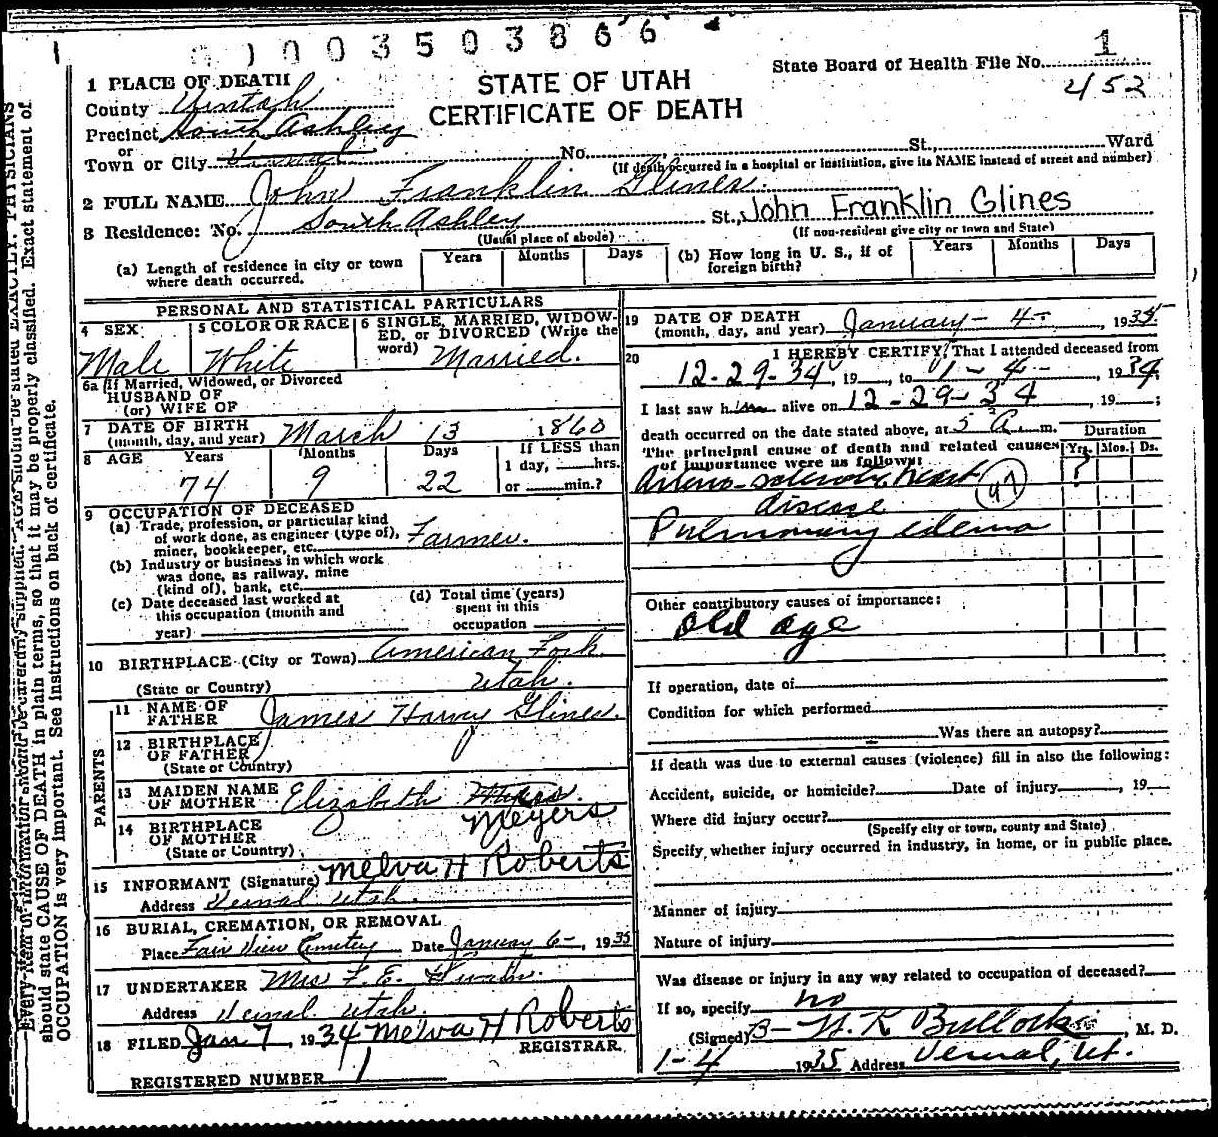 1003503866
STATE OF UTAH
CERTIFICATE OF DEATH
State Board of Health File No. 1
452
1 PLACE OF DEATH
County Uintah
Precinct South Ashley
or
Town or City Vernal No. St., Ward
(If death occurred in a hospital or institution, give its NAME instead of street and number)
2 FULL NAME John Franklin Glines
3 Residence: No. South Ashley St., John Franklin Glines
(Usual place of abode) (If non-resident give city or town and State)
(a) Length of residence in city or town where death occurred. Years Months Days
(b) How long in U. S., if of foreign birth? Years Months Days
PERSONAL AND STATISTICAL PARTICULARS
4 SEX Male
5 COLOR OR RACE White
6 SINGLE, MARRIED, WIDOWED, or DIVORCED (Write the word) Married.
6a If Married, Widowed, or Divorced
HUSBAND OF
(or) WIFE OF
7 DATE OF BIRTH
(month, day, and year) March 13 1860
8 AGE Years 74 Months 9 Days 22
If LESS than
1 day, hrs.
or min.?
9 OCCUPATION OF DECEASED
(a) Trade, profession, or particular kind
of work done, as engineer (type of),
miner, bookkeeper, etc. Farmer.
(b) Industry or business in which work
was done, as railway, mine
(kind of), bank, etc.
(c) Date deceased last worked at
this occupation (month and
year)
(d) Total time (years)
spent in this
occupation
10 BIRTHPLACE (City or Town) American Fork
(State or Country) Utah.
PARENTS
11 NAME OF
FATHER James Harvey Glines.
12 BIRTHPLACE
OF FATHER
(State or Country)
13 MAIDEN NAME
OF MOTHER Elizabeth
Meyers
14 BIRTHPLACE
OF MOTHER
(State or Country)
15 INFORMANT (Signature) Melva H Roberts
Address Vernal Utah.
16 BURIAL, CREMATION, OR REMOVAL
Place Fair View Cemetery Date January 6-, 1935
17 UNDERTAKER Mrs F. E.
Address Vernal Utah.
18 FILED Jan 7, 1934 Melva H Roberts
REGISTRAR.
REGISTERED NUMBER 1
19 DATE OF DEATH
(month, day, and year) January - 4 - 1935
20 I HEREBY CERTIFY, That I attended deceased from
12-29-34, 19, to 1-4-, 1934
I last saw him alive on 12-29-34, 19;
death occurred on the date stated above, at 5 A m.
The principal cause of death and related causes
of importance were as follows:
Duration
Yrs. Mos. Ds.
Arterio-sclerotic heart ?
disease
Pulmonary edema
Other contributory causes of importance:
Old age
If operation, date of
Condition for which performed
Was there an autopsy?
If death was due to external causes (violence) fill in also the following:
Accident, suicide, or homicide? Date of injury, 19
Where did injury occur?
(Specify city or town, county and State)
Specify whether injury occurred in industry, in home, or in public place.
Manner of injury
Nature of injury
Was disease or injury in any way related to occupation of deceased?
If so, specify no
(Signed) B- H. K Bullock, M. D.
1-4 1935 Address Vernal, Ut.
should state CAUSE OF DEATH in plain terms, so that it may be properly classified. Exact statement of
OCCUPATION is very important. See instructions on back of certificate.